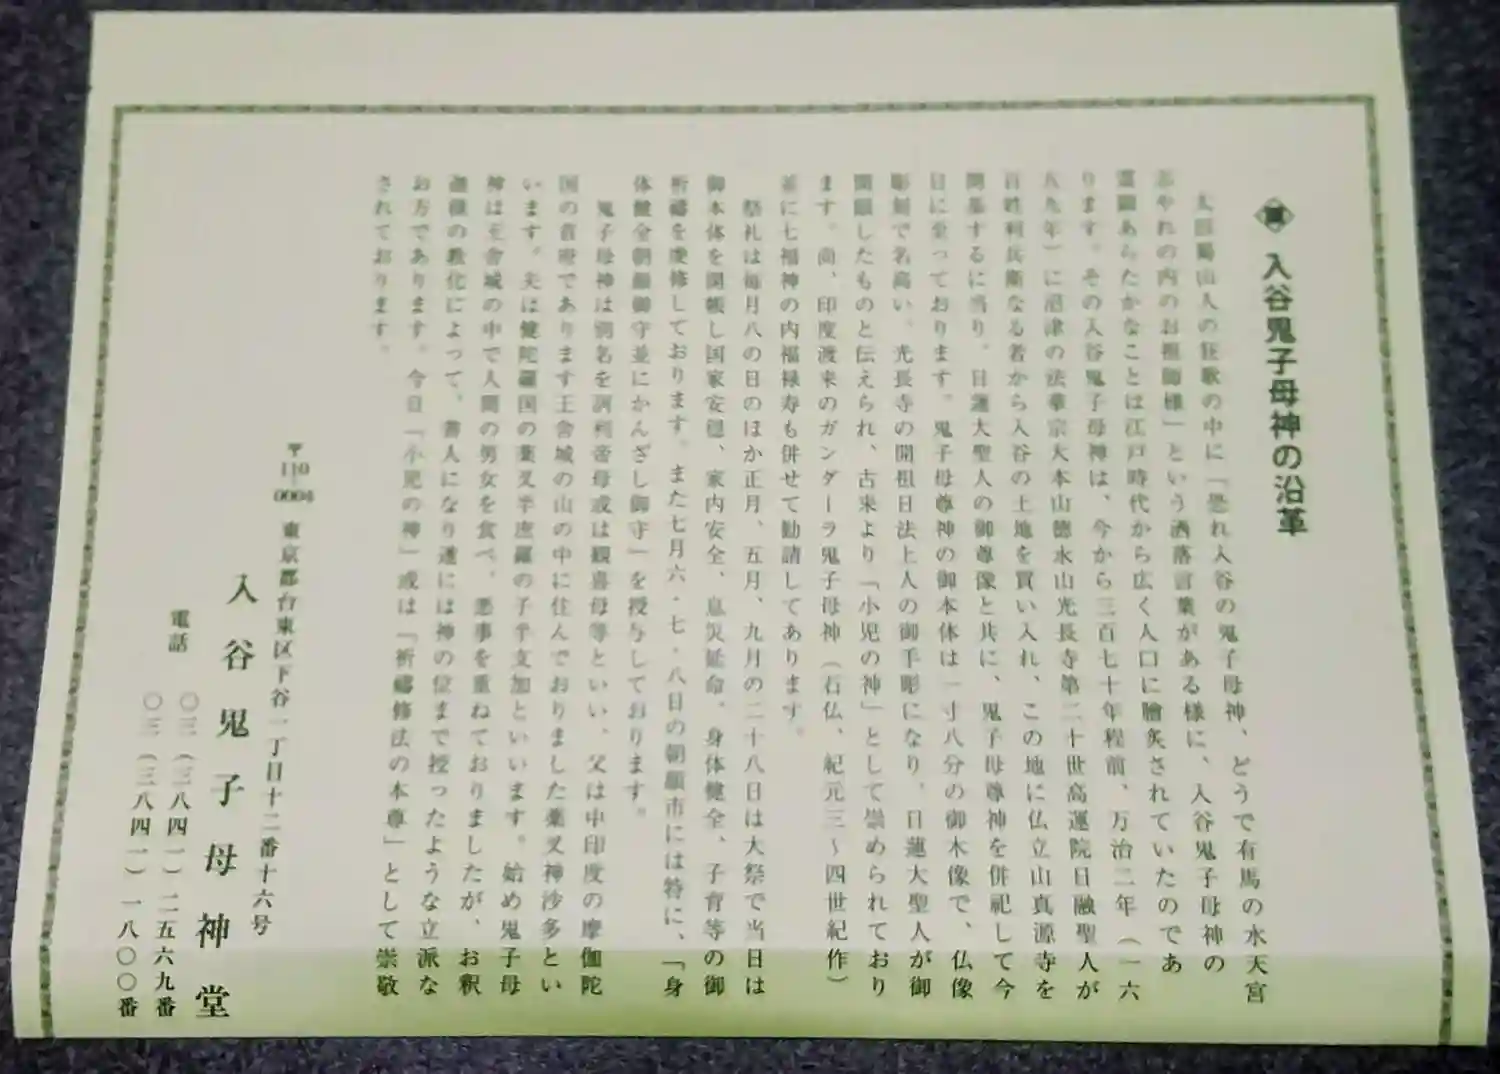 入谷鬼子母神の沿革
太田蜀山人の狂歌の中に「恐れ入谷の鬼子母神、どうで有馬の水天宮
志やれの内のお祖師様」という洒落言葉がある様に、入谷鬼子母神の
霊顕あらたかなことは江戸時代から広く人口に膾炙されていたのであ
ります。その入谷鬼子母神は、今から三百七十年程前、万治二年(一六
五九年)に沼津の法華宗大本山徳永山光長寺第二十世高運院日融聖人が
百姓利兵衛なる者から入谷の土地を買い入れ、この地に仏立山真源寺を
開基するに当り、日蓮大聖人の御尊像と共に、鬼子母尊神を併祀して今
日に至っております。鬼子母尊神の御本体は一寸八分の御木像で、仏像
彫刻で名高い、光長寺の開祖日法上人の御手彫になり、日蓮大聖人が御
開眼したものと伝えられ、古来より「小児の神」として崇められており
ます。尚、印度渡来のガンダーラ鬼子母神(石仏、紀元三〜四世紀作)
並に七福神の内福禄寿も併せて勧請してあります。
祭礼は毎月八の日のほか正月、五月、九月の二十八日は大祭で当日は
御本体を開帳し国家安穏、家内安全、息災延命、身体健全、子育等の御
祈祷を厳修しております。また七月六・七・八日の朝顔市には特に、「身
体健全朝顔御守並にかんざし御守」を授与しております。
鬼子母神は別名を訶利帝母或は観喜母等といい、父は中印度の摩伽陀
国の首府であります王舎城の山の中に住んでおりました薬叉神沙多とい
います。夫は健陀羅国の薬叉半庶羅の子半支加といいます。始め鬼子母
神は王舎城の中で人間の男女を食べ、悪事を重ねておりましたが、お釈
迦様の教化によって、善人になり遂には神の位まで授ったような立派な
お方であります。今日「小児の神」或は「祈祷修法の本尊」として崇敬
されております。
〒110-0004 東京都台東区下谷一丁目十二番十六号
入谷鬼子母神堂
電話 〇三(三八四一)二五六九番
〇三(三八四一)一八〇〇番